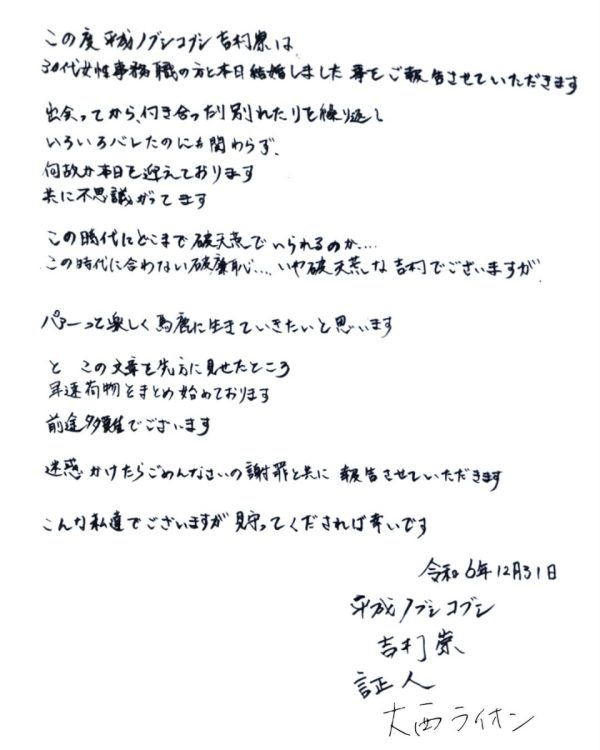 この度平成ノブシコブシ吉村崇は
30代女性事務職の方と本日結婚しました事をご報告させていただきます
出会ってから、付き合ったり別れたりを繰り返し
いろいろバレたのにも関わらず、
何故か本日を迎えております
共に不思議がってます
この時代にどこまで破天荒でいられるのか....
この時代に合わない破廉恥....いや破天荒な吉村でございますが
パァーって楽しく馬鹿に生きていきたいと思います
と この文章を先方に見せたところ
早速荷物をまとめ始めております
前途多難でございます
迷惑かけたらごめんなさいの謝罪と共に 報告させていただきます
こんな私達でございますが見守ってくだされば幸いです
令和6年12月31日
平成ノブシコブシ
吉村崇
証人
大西ライオン